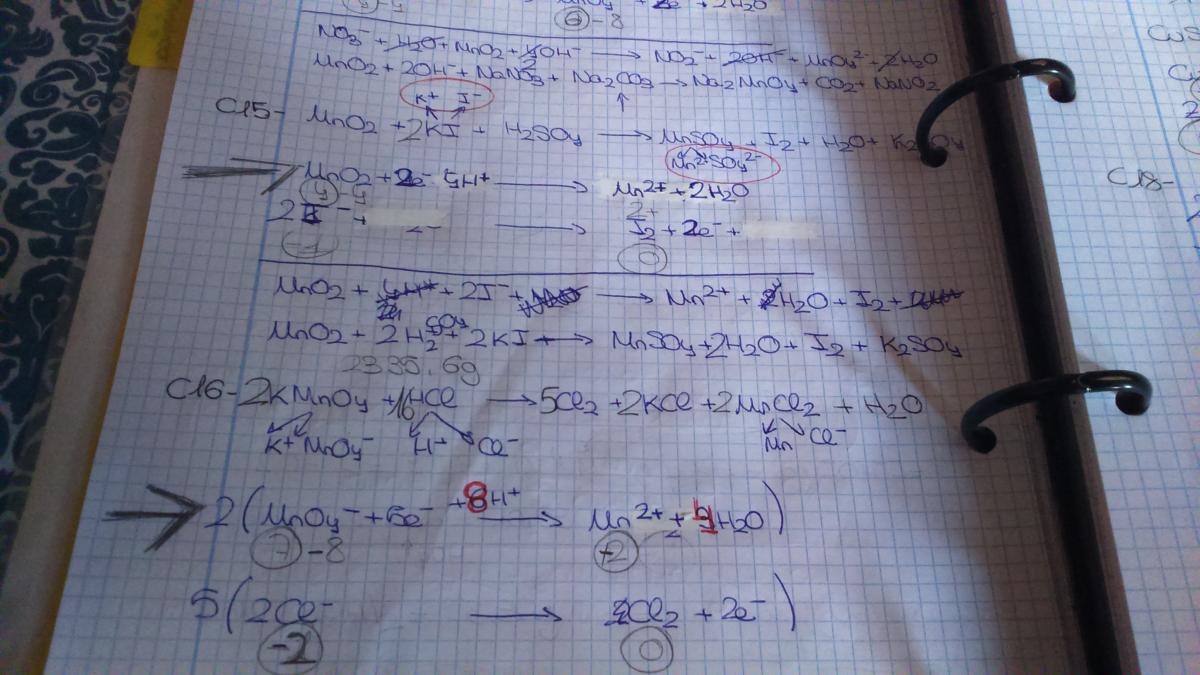 ⑥-8
NO3⁻ + H2O + MnO2 + 4OH⁻ → NO2⁻ + 2OH⁻ + MnO4²⁻ + 2H2O
MnO2 + 2OH⁻ + NaNO3 + Na2CO3 → Na2MnO4 + CO2 + NaNO2
K+ I⁻
C15- MnO2 + 2KI + H2SO4 → MnSO4 + I2 + H2O + K2SO4
Mn²⁺ SO4²⁻
MnO2 + 2e⁻ 4H⁺ → Mn²⁺ + 2H2O
④-4
2I⁻ + → I2 + 2e⁻ +
-1 0
MnO2 + 4H⁺ + 2I⁻ + → Mn²⁺ + 2H2O + I2 +
MnO2 + 2H2SO4 + 2KI → MnSO4 + 2H2O + I2 + K2SO4
2335.6g
C16- 2KMnO4 + 16HCl → 5Cl2 + 2KCl + 2MnCl2 + H2O
K+ MnO4⁻ H⁺ Cl⁻ Mn Cl⁻
C18-
2(MnO4⁻ + 5e⁻ + 8H⁺ → Mn²⁺ + 4H2O)
⑦-8 +2
5(2Cl⁻ → Cl2 + 2e⁻)
-2 0